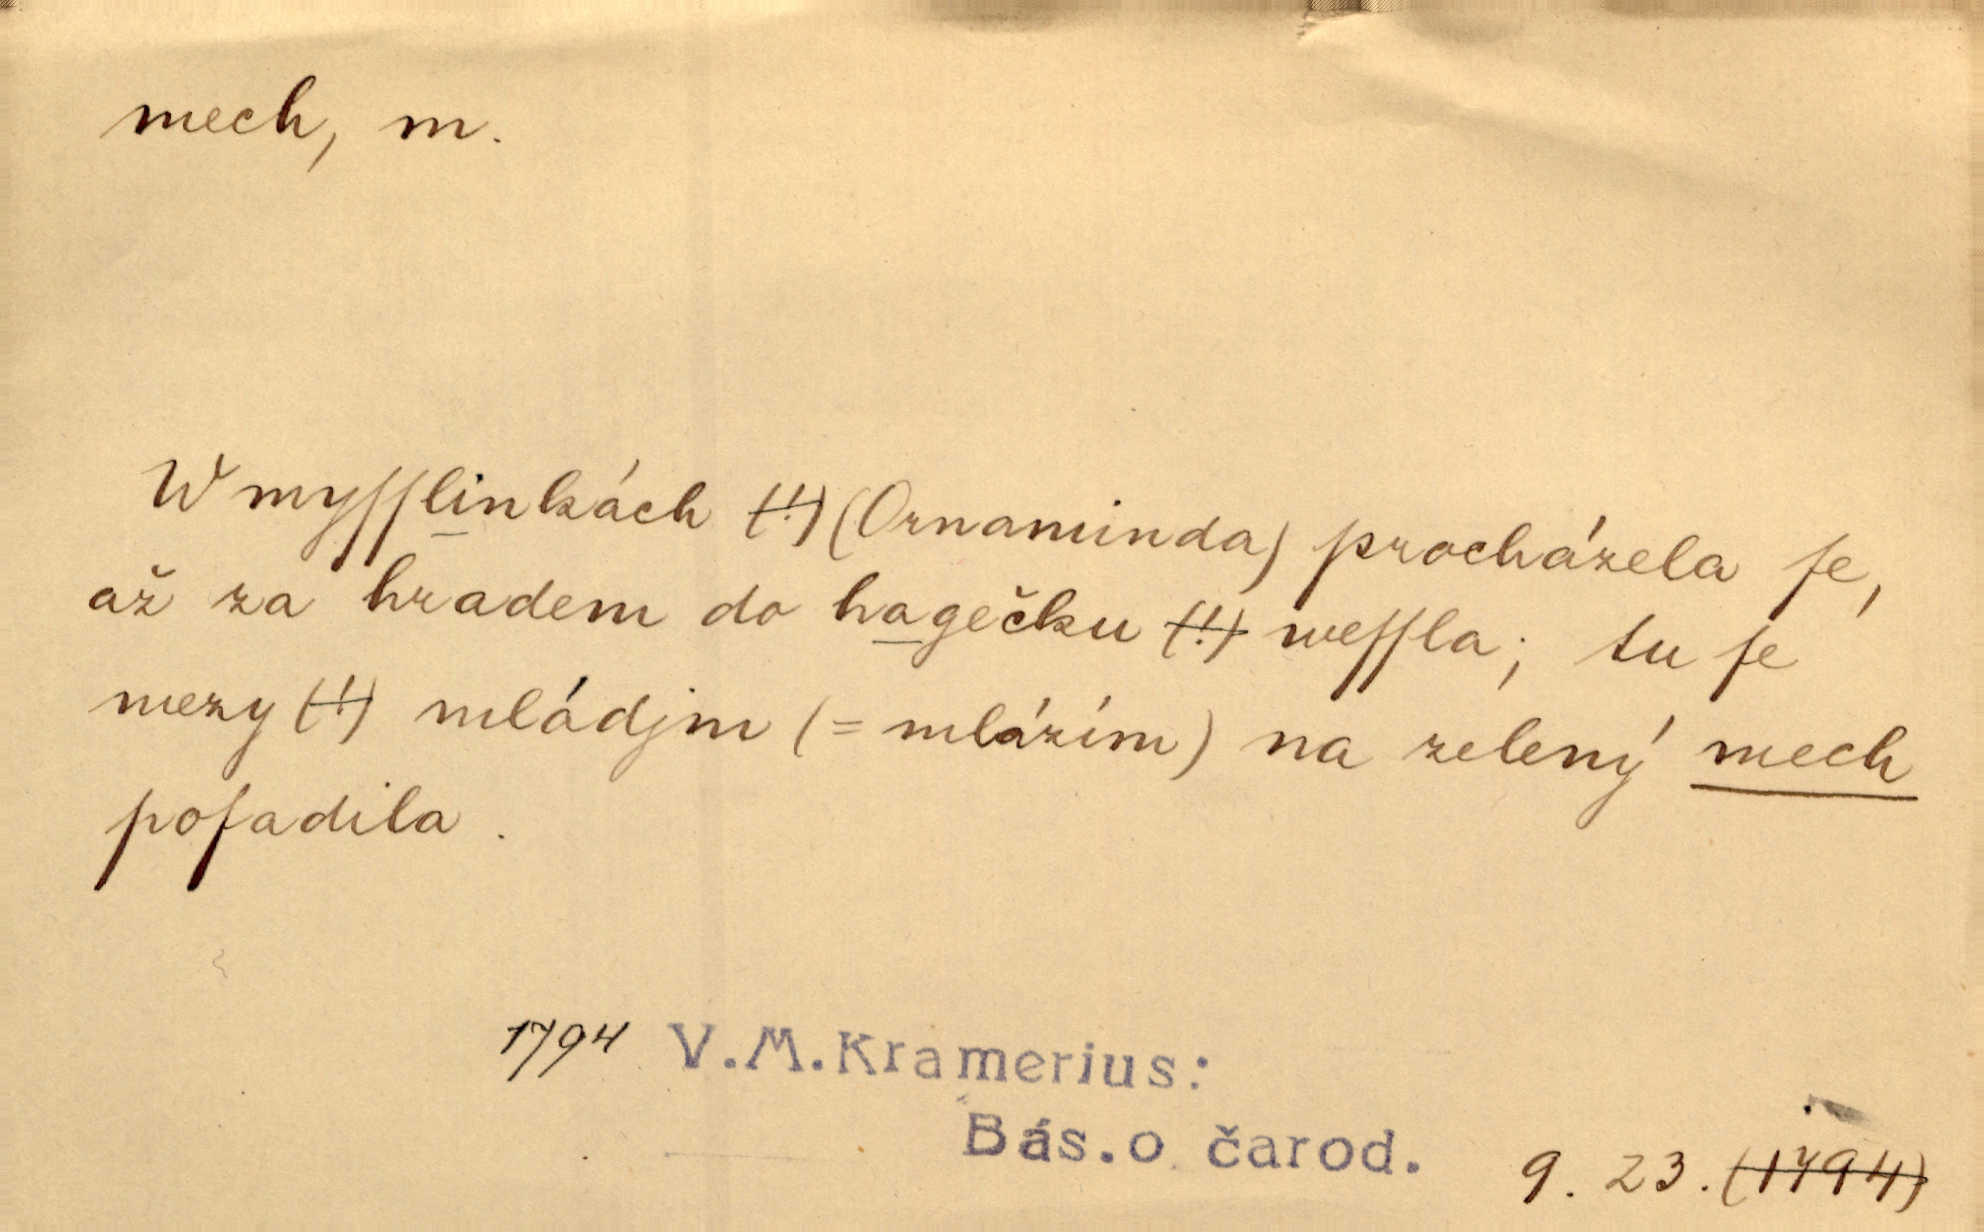 mech, m.
W myſſlinkách (!) (Ornaminda) procházela ſe,
až za hradem do hagečku (!) weſſla; tu ſe
mezy (!) mládjm (= mlázím) na zelený mech
poſadila.
1794 V.M.Kramerius:
Bás.o čarod.
9. 23. (1794)